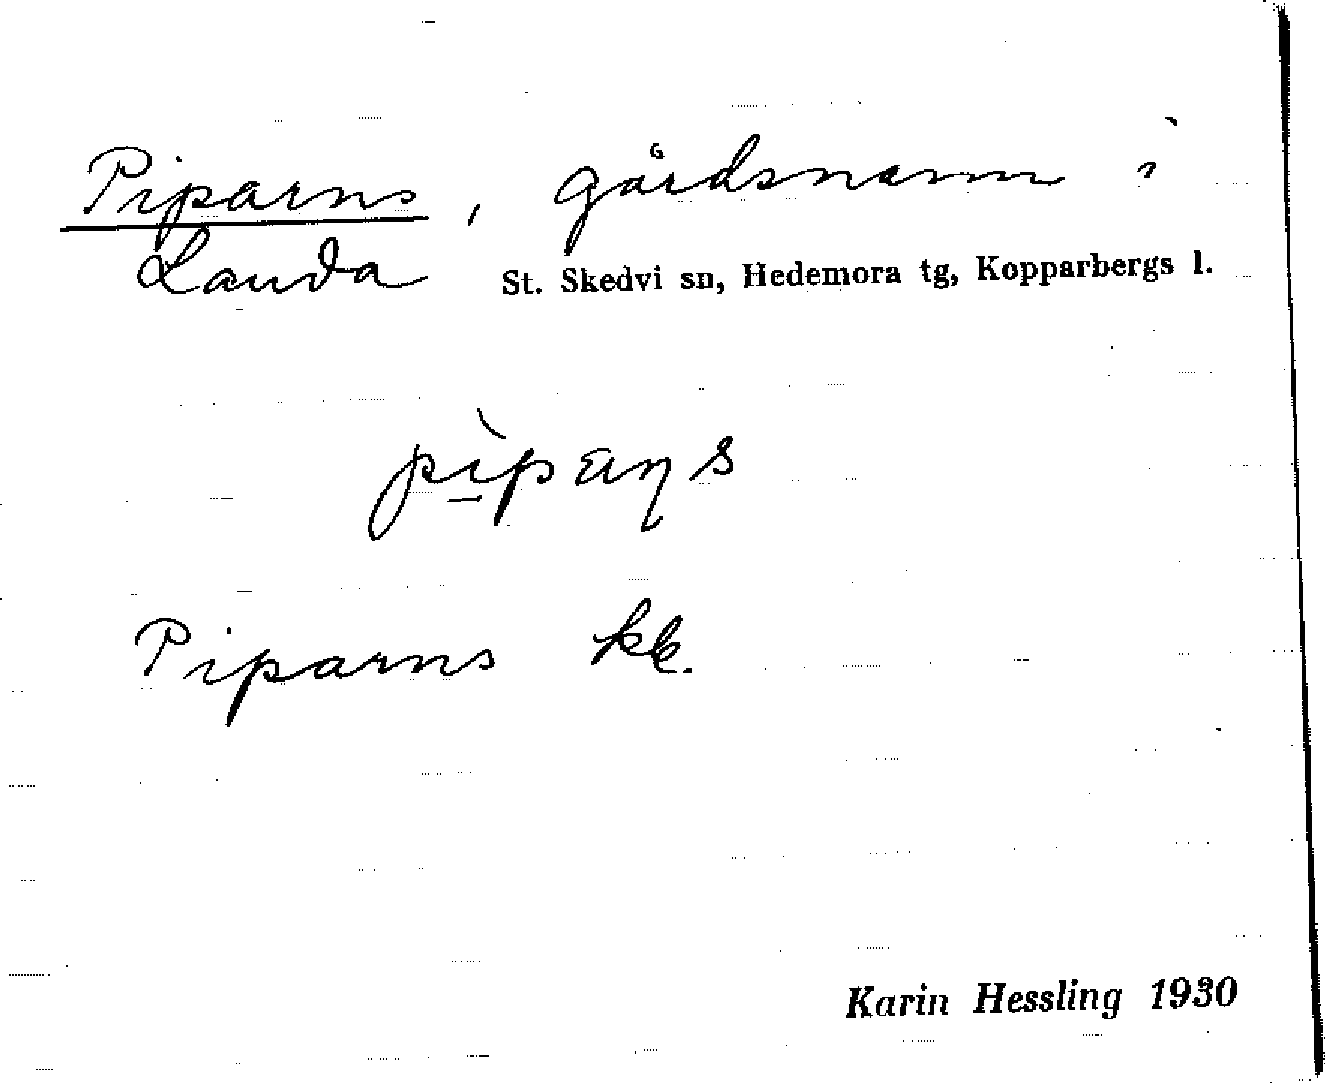 Piparns, gårdsnamn i
Landa St. Skedvi sn, Hedemora tg, Kopparbergs l.
Piparns kk.
Karin Hessling 1930